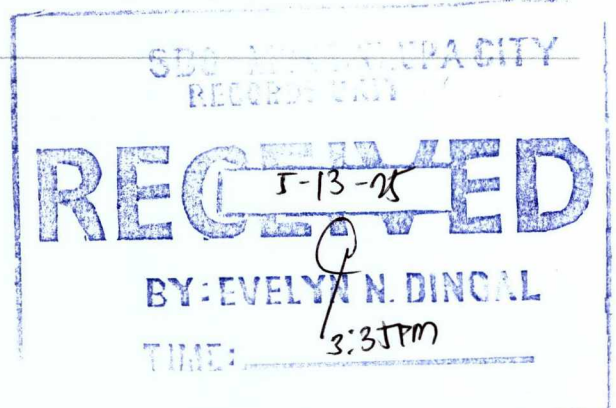 SDO MUNTINLUPA CITY
RECORDS UNIT
RECEIVED
5-13-25
BY: EVELYN N. DINGAL
TIME: 3:35PM